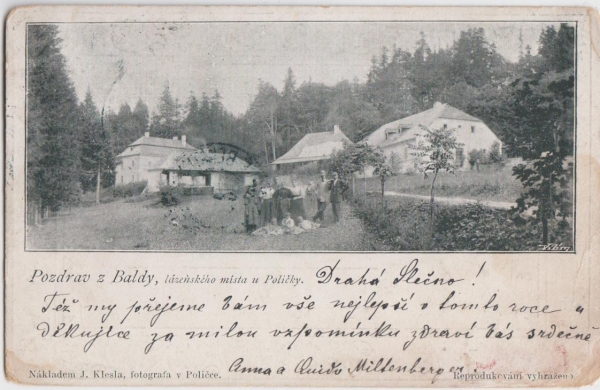 Pozdrav z Baldy, lázeňského místa u Poličky. Drahá Slečno!
Též my přejeme Vám vše nejlepší v tomto roce a
děkujíce za milou vzpomínku zdraví Vás srdečně
Anna a Quido Miltenbergovi.
Nákladem J. Klesla, fotografa v Poličce. Reprodukování vyhrazeno.